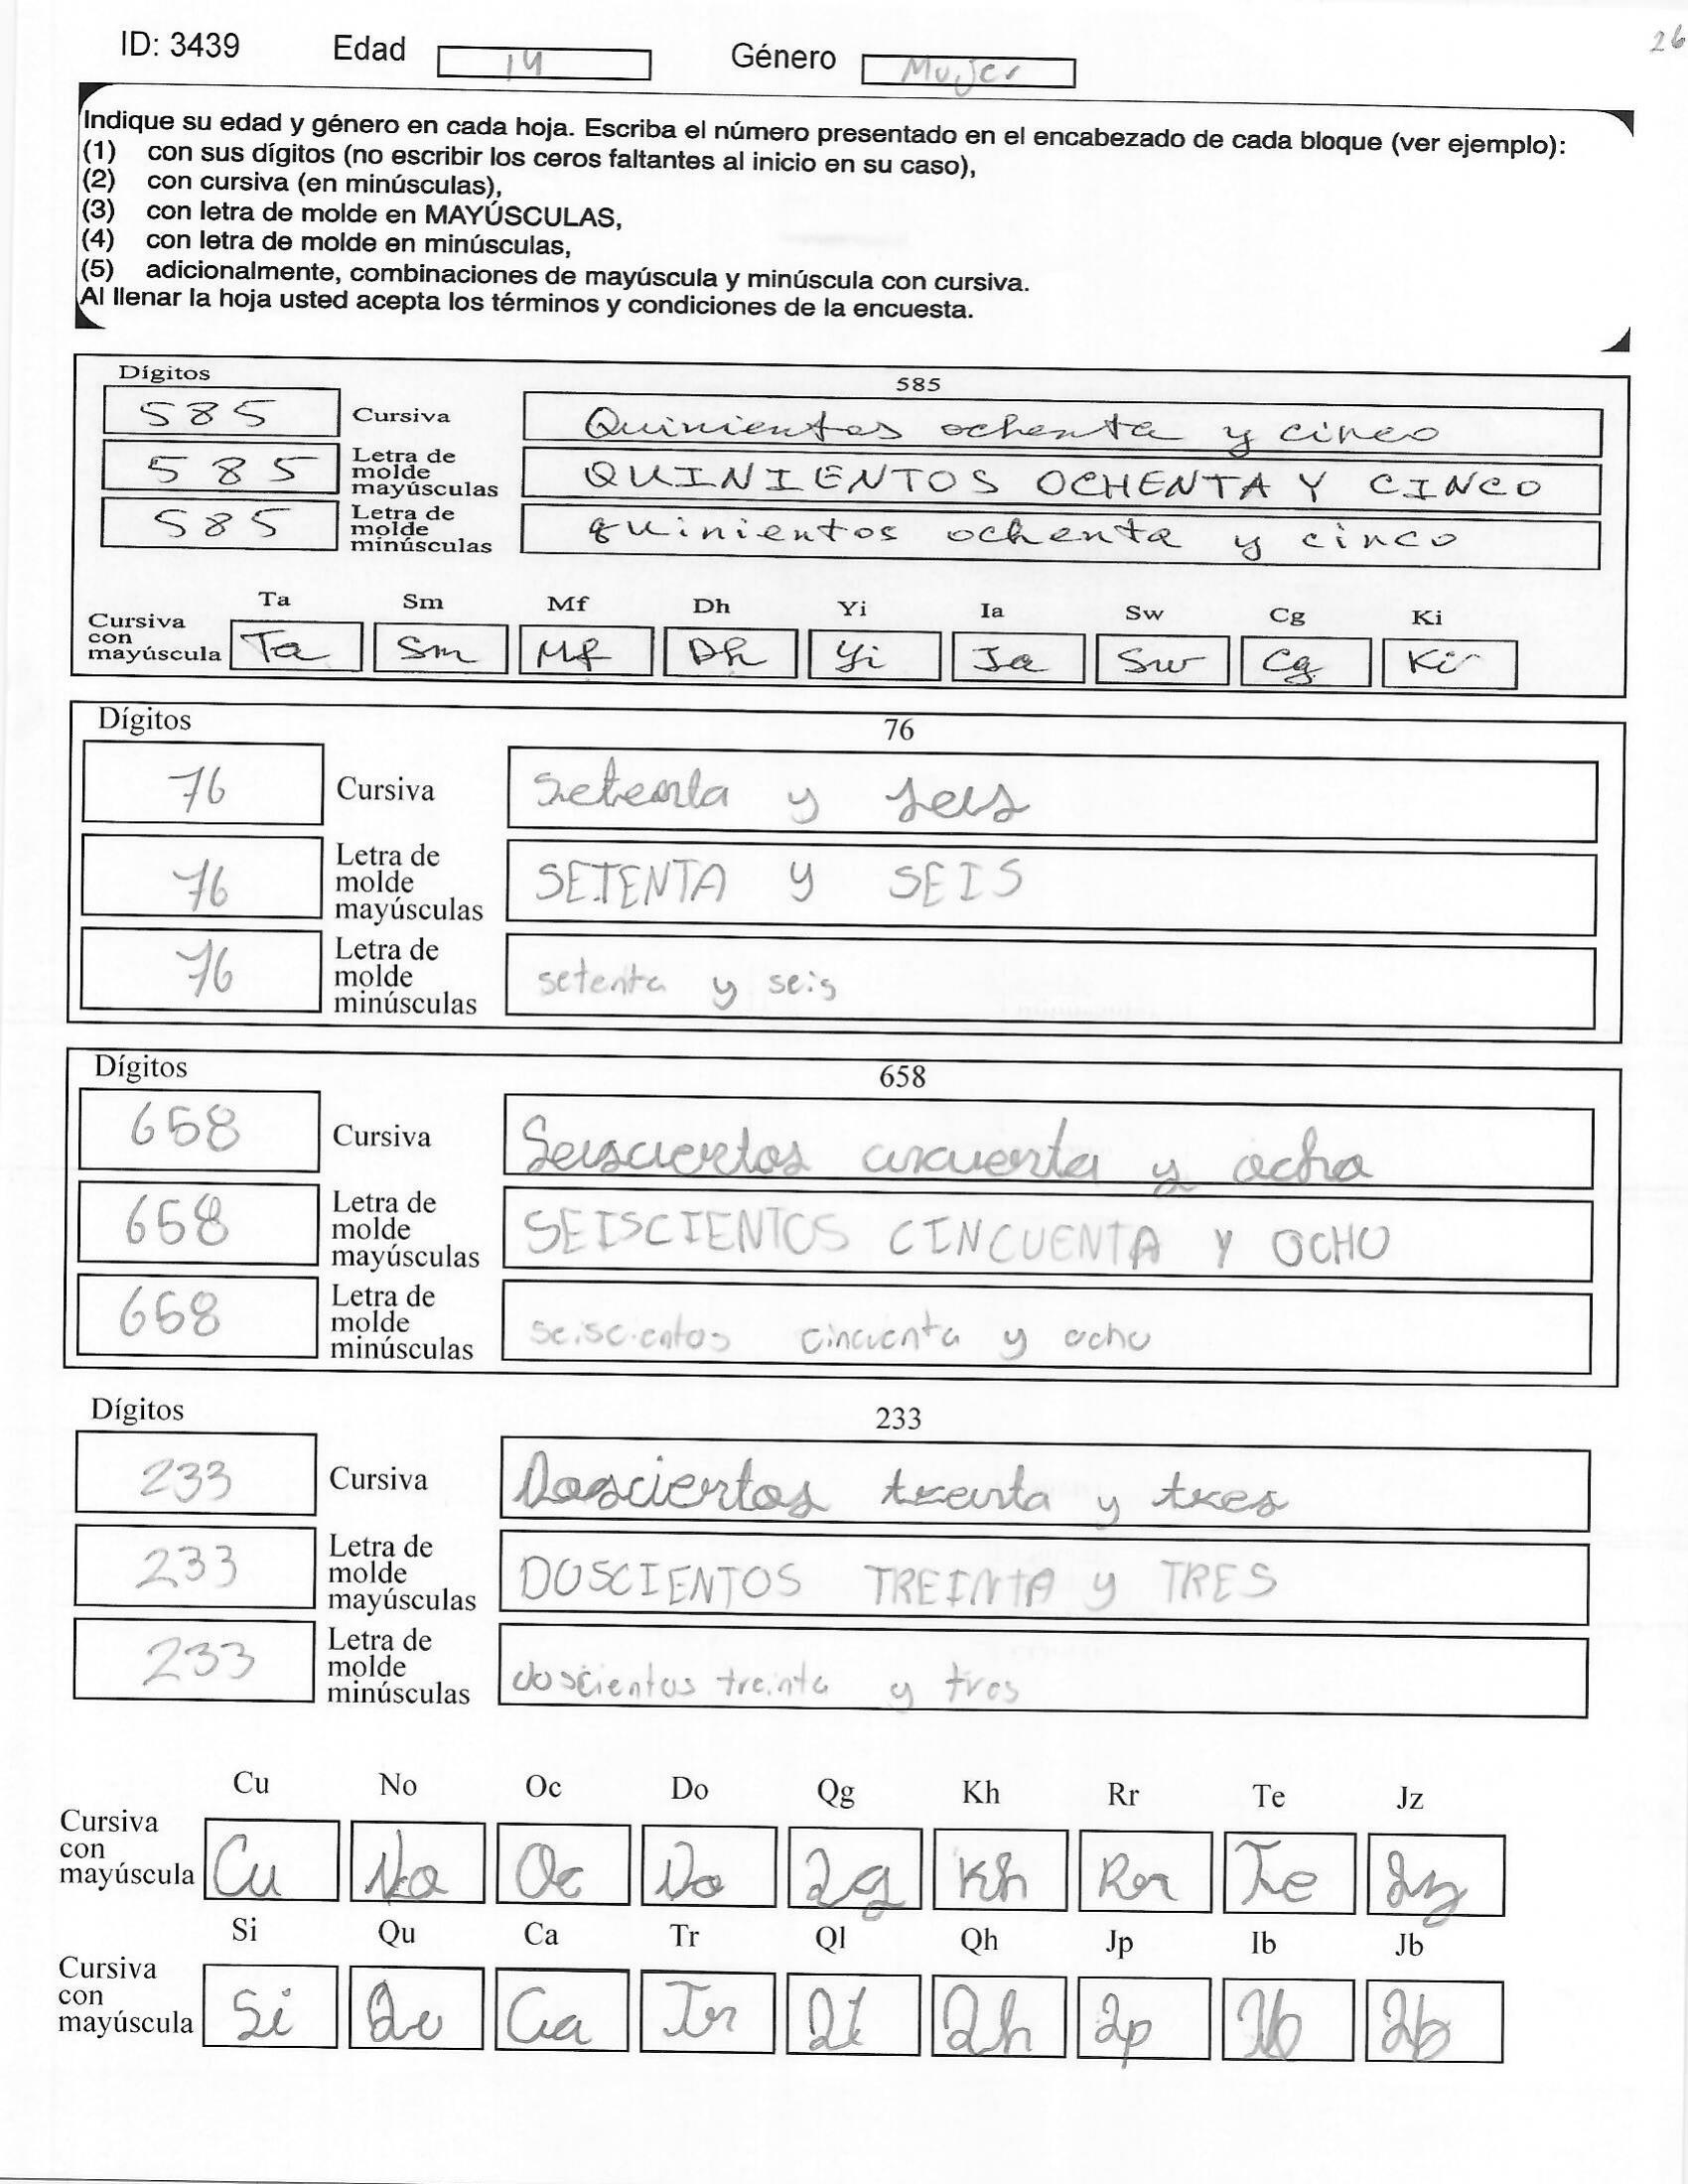 26
ID: 3439 Edad 14 Género Mujer
Indique su edad y género en cada hoja. Escriba el número presentado en el encabezado de cada bloque (ver ejemplo):
(1) con sus dígitos (no escribir los ceros faltantes al inicio en su caso),
(2) con cursiva (en minúsculas),
(3) con letra de molde en MAYÚSCULAS,
(4) con letra de molde en minúsculas,
(5) adicionalmente, combinaciones de mayúscula y minúscula con cursiva.
Al llenar la hoja usted acepta los términos y condiciones de la encuesta.
Dígitos 585
585 Cursiva Quinientos ochenta y cinco
585 Letra de molde mayúsculas QUINIENTOS OCHENTA Y CINCO
585 Letra de molde minúsculas quinientos ochenta y cinco
Ta Sm Mf Dh Yi Ia Sw Cg Ki
Cursiva con mayúscula Ta Sm Mf Dh Yi Ia Sw Cg Ki
Dígitos 76
76 Cursiva Setenta y seis
76 Letra de molde mayúsculas SETENTA y SEIS
76 Letra de molde minúsculas setenta y seis
Dígitos 658
658 Cursiva Seiscientos cincuenta y ocho
658 Letra de molde mayúsculas SEISCIENTOS CINCUENTA Y OCHO
658 Letra de molde minúsculas seiscientos cincuenta y ocho
Dígitos 233
233 Cursiva Doscientos treinta y tres
233 Letra de molde mayúsculas DOSCIENTOS TREINTA y TRES
233 Letra de molde minúsculas doscientos treinta y tres
Cu No Oc Do Qg Kh Rr Te Jz
Cursiva con mayúscula Cu No Oc Do Qg Kh Rr Te Jz
Si Qu Ca Tr Ql Qh Jp Ib Jb
Cursiva con mayúscula Si Qu Ca Tr Ql Qh Jp Ib Jb